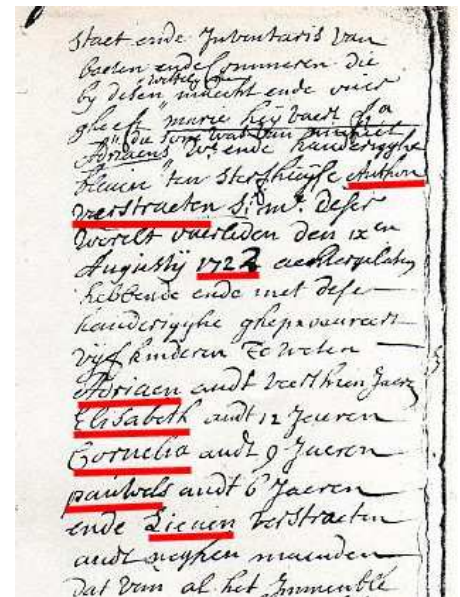 Staet ende Inventaris van
baeten ende Commeren die
by desen maeckt ende
gheeft marie
Adriaens we ende hauderigghe
bleven ten sterfhuyse Anthon
verstraeten deser
Werelt overleden den ix en
Augusty 1722 achterghelaten
hebbende ende met dese
hauderigghe gheprocureert
vyf kinderen te weten
Adriaen audt veerthien Jaeren
Elisabeth audt 12 Jaeren
Cornelia audt 9 Jaeren
pauwels audt 6 Jaeren
ende Lieven verstraeten
audt neghen maenden
dat van al het Immeuble